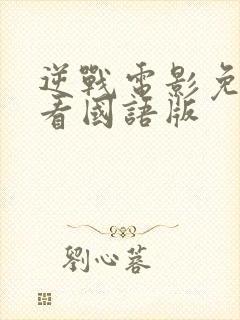 逆戰電影免
看國語版
劉心蓉